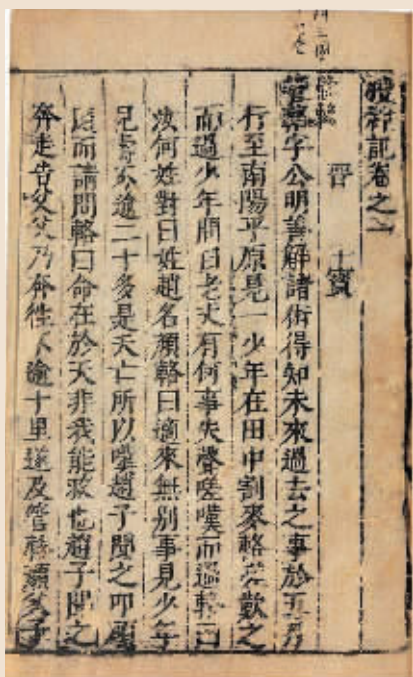 搜神記卷之一
晉 干寶
管輅字公明善解諸術得知未來過去之事於五月
行至南陽平原見一少年在田中割麥輅乃歎之
而過少年問曰老丈有何事失聲嗟嘆而過輅曰
汝何姓對曰姓趙名顏輅曰適來無別事見少年
兄壽不逾二十多是夭亡所以嗟趙子聞之叩頭
而請問輅曰命在於天非我能救也趙子聞之
奔走告父父乃奔往不逾十里遂及管輅